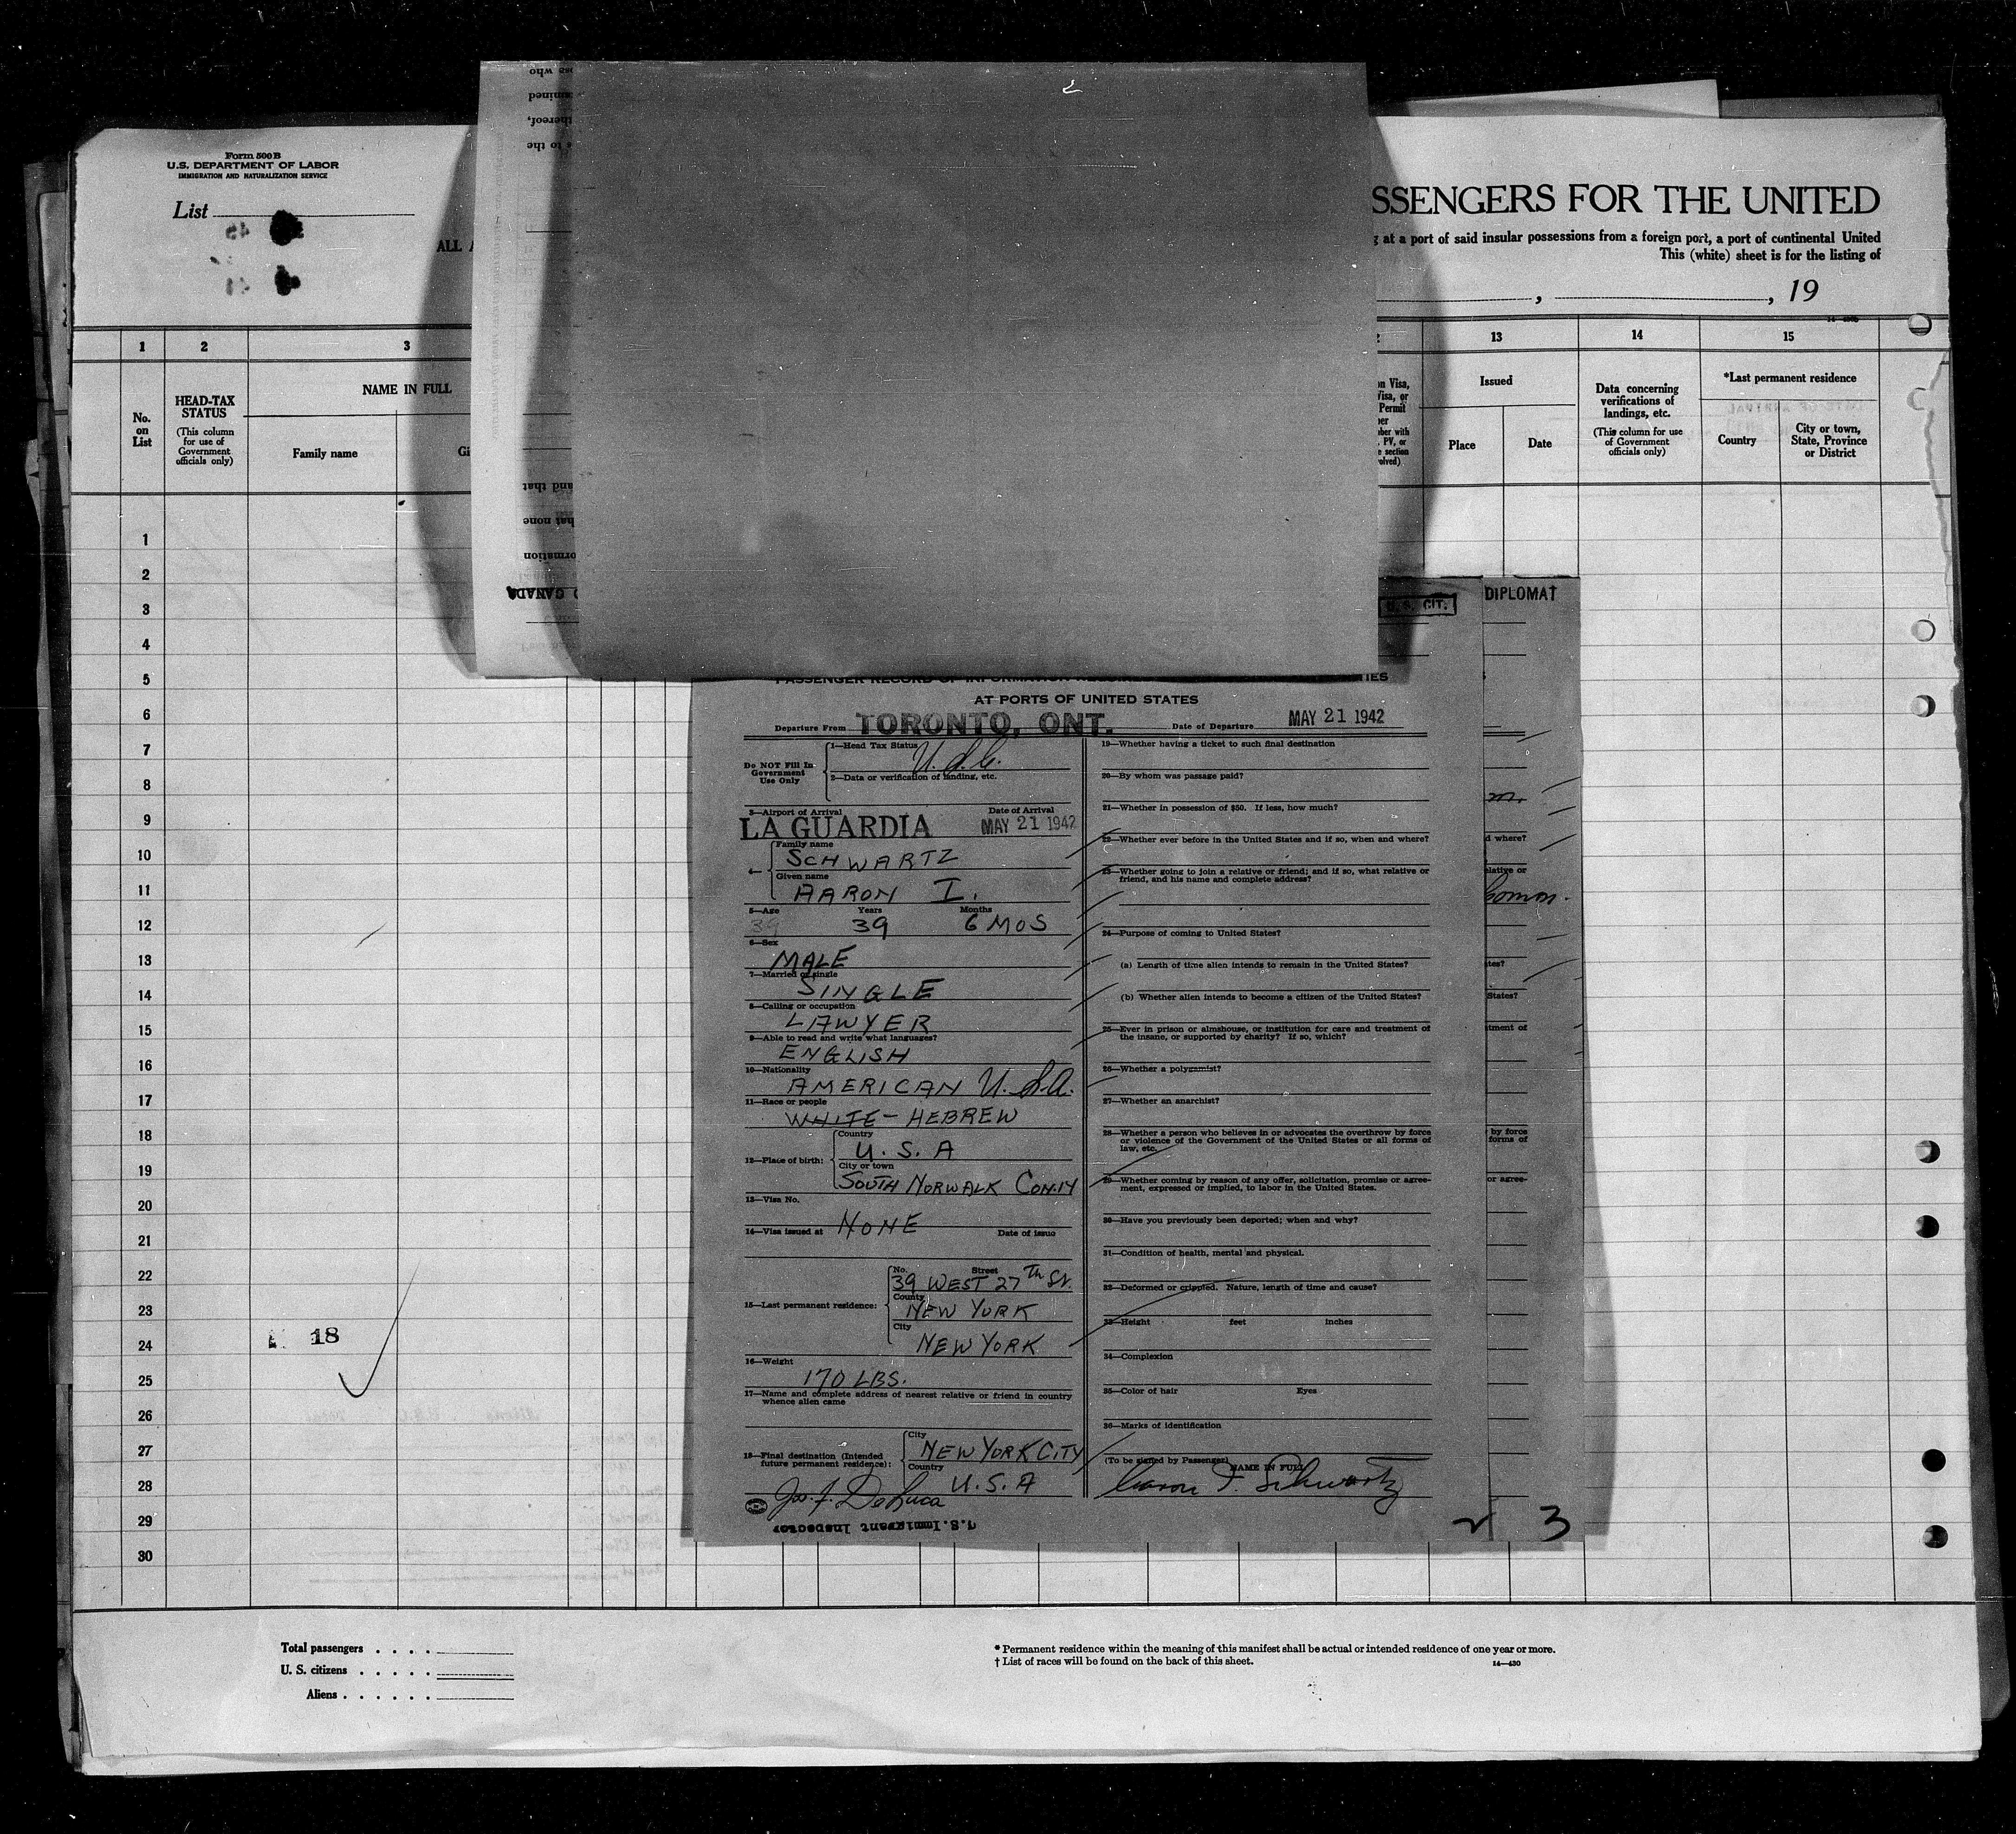 Form 500 B
U.S. DEPARTMENT OF LABOR
IMMIGRATION AND NATURALIZATION SERVICE
List
ALL
SSENGERS FOR THE UNITED
at a port of said insular possessions from a foreign port, a port of continental United
This (white) sheet is for the listing of
, , 19
1 2 3 13 14 15
No. on List
HEAD-TAX STATUS
(This column for use of Government officials only)
NAME IN FULL
Family name
Issued
Place
Date
Data concerning verifications of landings, etc.
(This column for use of Government officials only)
*Last permanent residence
Country
City or town, State, Province or District
1
2
3
4
5
6
7
8
9
10
11
12
13
14
15
16
17
18
19
20
21
22
23
24
25
26
27
28
29
30
18
U. S. CIT.
DIPLOMAT
AT PORTS OF UNITED STATES
Departure From TORONTO, ONT. Date of Departure MAY 21 1942
Do NOT Fill In Government Use Only
1—Head Tax Status U.S.C.
2—Data or verification of landing, etc.
3—Airport of Arrival Date of Arrival
LA GUARDIA MAY 21 1942
4— Family name
SCHWARTZ
Given name
AARON I.
5—Age Years Months
39 39 6 MOS
6—Sex
MALE
7—Married or single
SINGLE
8—Calling or occupation
LAWYER
9—Able to read and write what languages?
ENGLISH
10—Nationality
AMERICAN U.S.A.
11—Race or people
WHITE - HEBREW
12—Place of birth: Country
U.S.A
City or town
SOUTH NORWALK CONN
13—Visa No.
14—Visa issued at NONE Date of issue
15—Last permanent residence: No. Street
39 WEST 27TH ST.
County
NEW YORK
City
NEW YORK
16—Weight
170 LBS.
17—Name and complete address of nearest relative or friend in country
whence alien came
18—Final destination (Intended future permanent residence): City
NEW YORK CITY
Country
U.S.A
Jos. F. DeLuca
U.S. Immigrant Inspector
19—Whether having a ticket to such final destination
20—By whom was passage paid?
21—Whether in possession of $50. If less, how much?
22—Whether ever before in the United States and if so, when and where?
23—Whether going to join a relative or friend; and if so, what relative or
friend, and his name and complete address?
24—Purpose of coming to United States?
(a) Length of time alien intends to remain in the United States?
(b) Whether alien intends to become a citizen of the United States?
25—Ever in prison or almshouse, or institution for care and treatment of
the insane, or supported by charity? If so, which?
26—Whether a polygamist?
27—Whether an anarchist?
28—Whether a person who believes in or advocates the overthrow by force
or violence of the Government of the United States or all forms of
law, etc.
29—Whether coming by reason of any offer, solicitation, promise or agree-
ment, expressed or implied, to labor in the United States.
30—Have you previously been deported; when and why?
31—Condition of health, mental and physical.
32—Deformed or crippled. Nature, length of time and cause?
33—Height feet inches
34—Complexion
35—Color of hair Eyes
36—Marks of identification
(To be signed by Passenger) NAME IN FULL
Aaron I. Schwartz
2 3
Total passengers
U. S. citizens
Aliens
* Permanent residence within the meaning of this manifest shall be actual or intended residence of one year or more.
† List of races will be found on the back of this sheet.
14—430